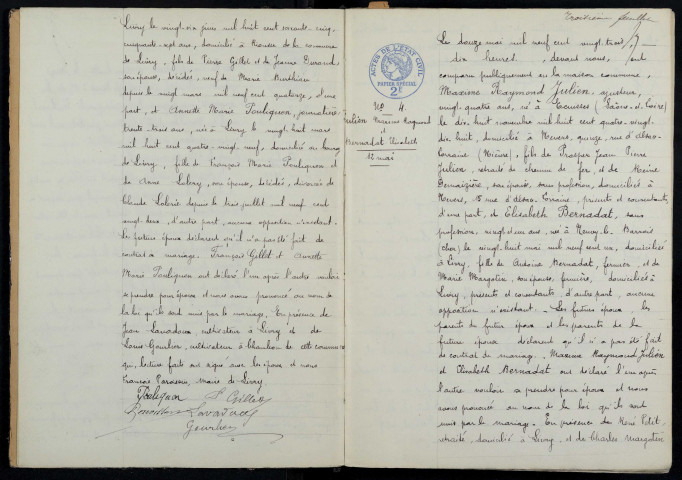 Livry le vingt-six juin mil huit cent soixante-cinq,
cinquante-sept ans, domicilié à de la commune
de Livry, fils de Pierre Gillet et de Jeanne Durand,
son épouse, décédés, veuf de Marie
depuis le vingt mars mil neuf cent quatorze, d'une
part, et Annette Marie Pouliquon, journalière
trente-trois ans, née à Livry le vingt-huit mars
mil huit cent quatre-vingt-neuf, domiciliée au bourg
de Livry, fille de François Marie Pouliquon et
de Anne, son épouse, décédés, divorcée de
Claude depuis le trois juillet mil neuf cent
vingt-deux, d'autre part, aucune opposition n'existant.
Les futurs époux déclarent qu'il n'a pas été fait de
contrat de mariage. François Gillet et Annette
Marie Pouliquon ont déclaré l'un après l'autre vouloir
se prendre pour époux et nous avons prononcé au nom de
la loi qu'ils sont unis par le mariage. En présence de
Jean Lavadoux, cultivateur à Livry et de
Louis Gourlier, cultivateur à de cette commune
qui, lecture faite ont signé avec les époux et nous
François, Maire de Livry.
Pouliquon F. Gillet
Lavadoux
Gourlier
Troisième feuillet
ACTES DE L'ÉTAT CIVIL
PAPIER SPÉCIAL
2F
No 4
Julien Maxime Raymond
et
Bernadat Elisabeth
12 mai
Le douze mai mil neuf cent vingt-trois,
dix heures, devant nous, ont
comparu publiquement en la maison commune,
Maxime Raymond Julien, ajusteur,
vingt-quatre ans, né à (Saône-et-Loire)
le dix-huit novembre mil huit cent quatre-vingt-
dix-huit, domicilié à Nevers, quinze, rue d'Alsace-
Lorraine (Nièvre), fils de Prosper Jean Pierre
Julien, retraité de chemin de fer, et de Reine
Demaizière, son épouse, sans profession, domiciliés à
Nevers, 15 rue d'Alsace-Lorraine, présents et consentants,
d'une part, et Elisabeth Bernadat, sans
profession, vingt-deux ans, née à Neuvy-le-Barrois
(Cher) le vingt-huit mai mil neuf cent un, domiciliée
à Livry, fille de Antoine Bernadat, fermier, et de
Marie Margotin, son épouse, fermière, domiciliés à
Livry, présents et consentants, d'autre part, aucune
opposition n'existant. Les futurs époux, les
parents du futur époux et les parents de la
future épouse déclarent qu'il n'a pas été fait
de contrat de mariage. Maxime Raymond Julien
et Elisabeth Bernadat ont déclaré l'un après
l'autre vouloir se prendre pour époux et nous
avons prononcé au nom de la loi qu'ils sont
unis par le mariage. En présence de René Petit,
retraité, domicilié à Livry, et de Charles Margotin